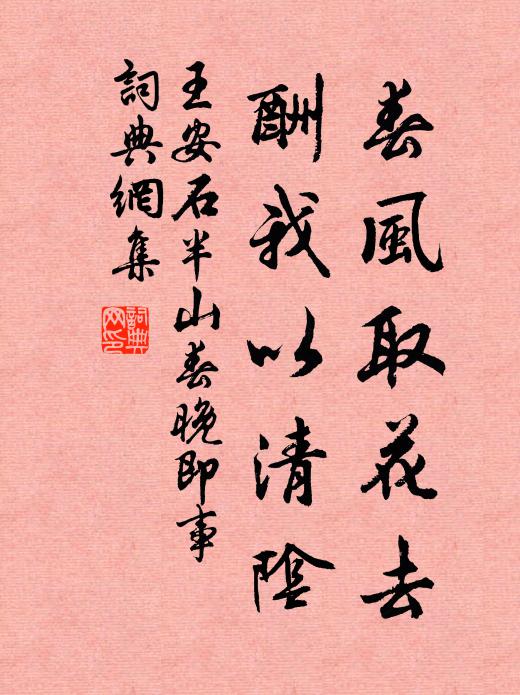 春風取花去
酬我以清陰
王安石半山春晚即事
詞典網集
詞典
网印